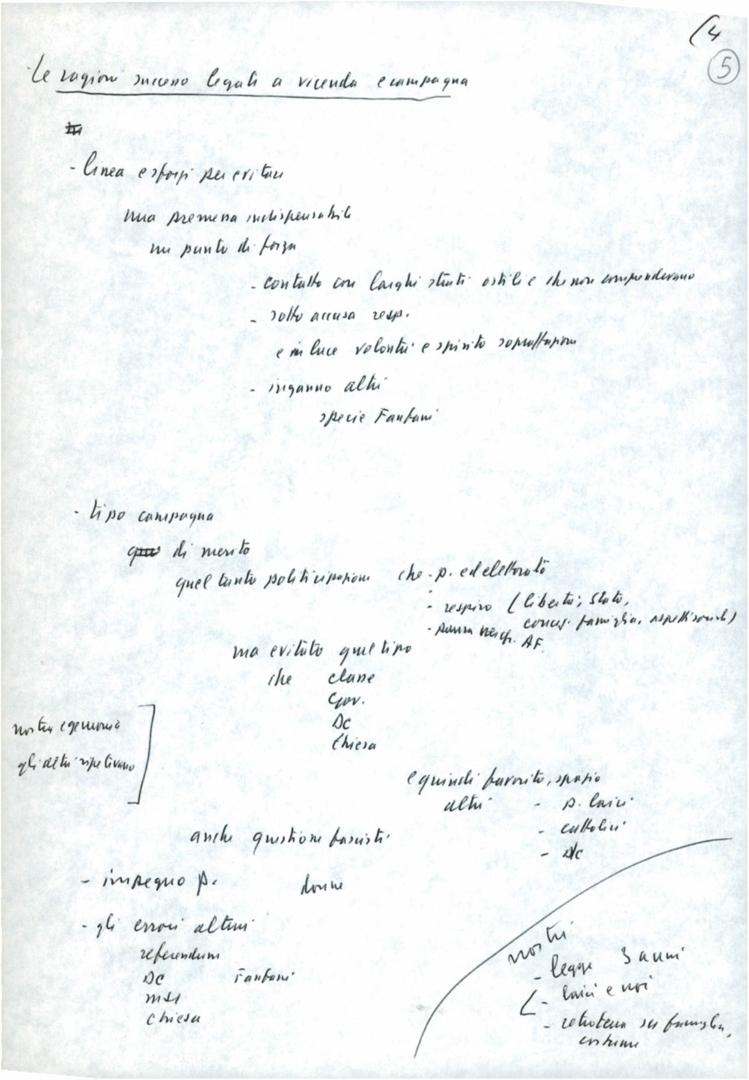 (4
5
Le ragioni successo legati a vicenda e campagna
- linea e sforzi per evitare
una premessa indispensabile
un punto di forza
- contatto con larghi strati ostili e che non comprendevano
- sotto accusa resp.
e in luce volontà e spirito sopraffazione
- inganno altri
specie Fanfani
- tipo campagna
di merito
quel tanto politicizzazione che - p. ed elettorato
- respiro (libertà, Stato,
concez. famiglia, aspetti sociali)
- AF.
ma evitato quel tipo
che classe
Gov.
DC
Chiesa
nostra egemonia
gli altri ripetevano
e quindi favorito, spazio
altri - p. laici
- cattolici
- DC
anche questione fascisti
- impegno p. donne
- gli errori altrui
referendum
DC Fanfani
MSI
Chiesa
nostri
- legge 3 anni
- laici e noi
- su famiglia,
costume